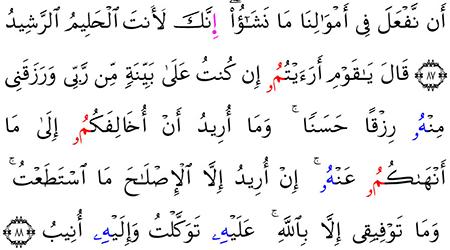 أَن نَّفْعَلَ فِى أَمْوَٰلِنَا مَا نَشَـٰٓؤُا۟ إِنَّكَ لَأَنتَ ٱلْحَلِيمُ ٱلرَّشِيدُ
﴿٨٧﴾ قَالَ يَـٰقَوْمِ أَرَءَيْتُمُۥ إِن كُنتُ عَلَىٰ بَيِّنَةٍ مِّن رَّبِّى وَرَزَقَنِى
مِنْهُۥ رِزْقًا حَسَنًا ۚ وَمَآ أُرِيدُ أَنْ أُخَالِفَكُمُۥٓ إِلَىٰ مَآ
أَنْهَىٰكُمُۥ عَنْهُۥٓ ۚ إِنْ أُرِيدُ إِلَّا ٱلْإِصْلَـٰحَ مَا ٱسْتَطَعْتُ ۚ
وَمَا تَوْفِيقِىٓ إِلَّا بِٱللَّهِ ۚ عَلَيْهِۦ تَوَكَّلْتُ وَإِلَيْهِۦٓ أُنِيبُ ﴿٨٨﴾